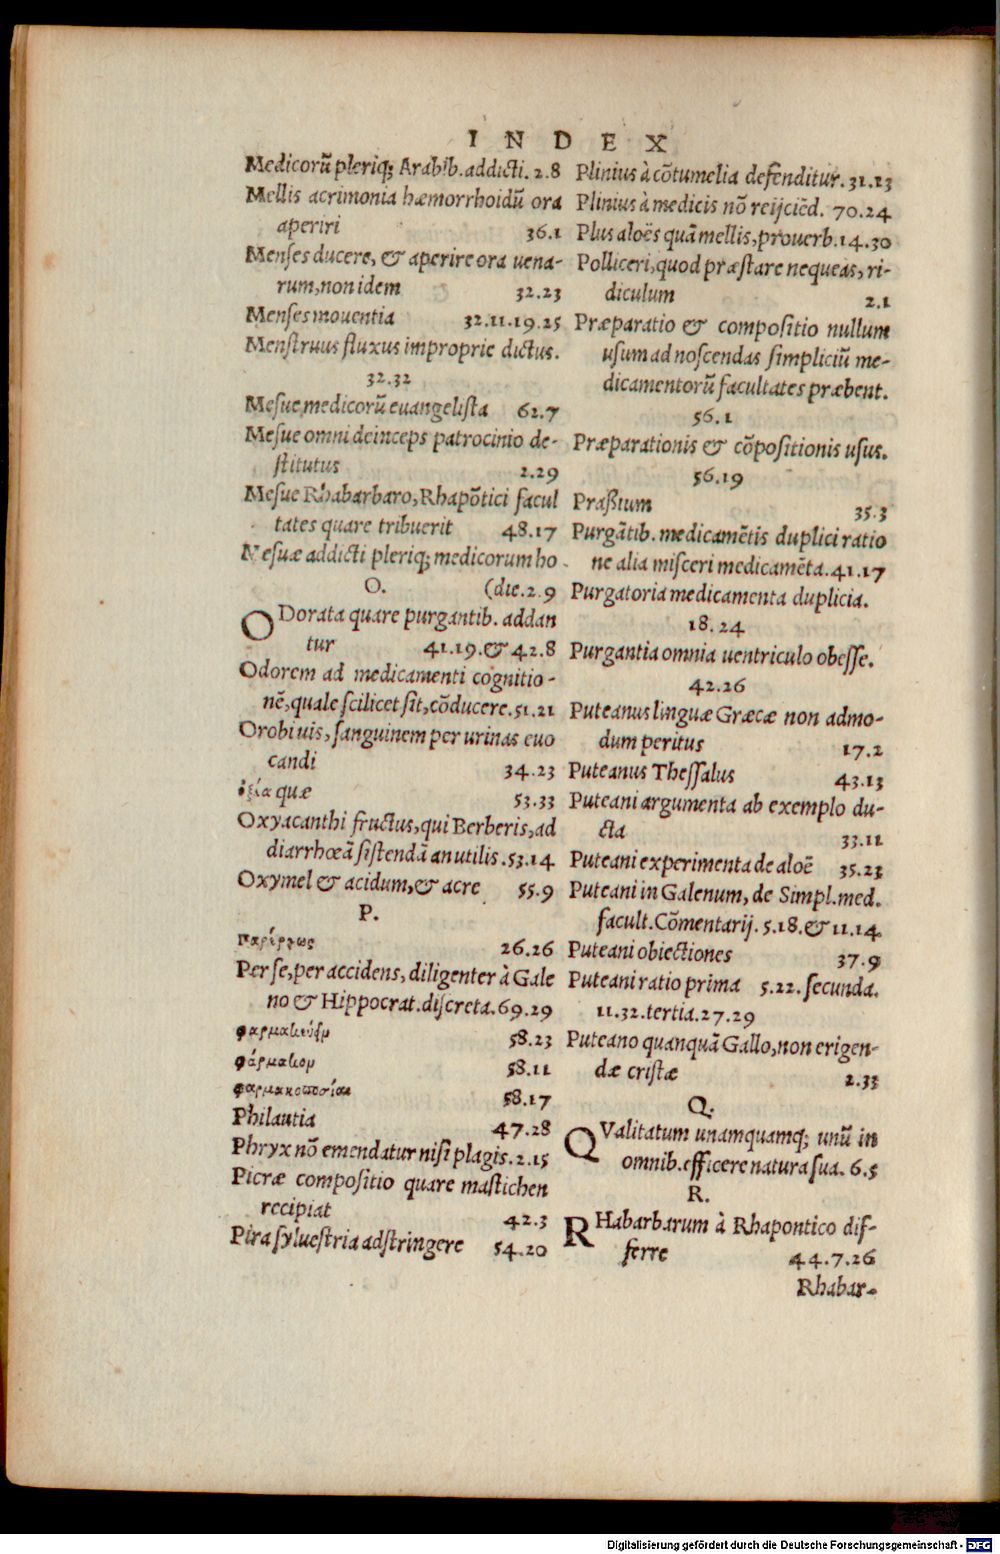 INDEX
Medicorũ pleriq; Arabib. addicti. 2.8
Mellis acrimonia hæmorrhoidũ ora
aperiri 36.1
Menses ducere, & aperire ora uena-
rum, non idem 32.23
Menses mouentia 32.11.19.25
Menstruus fluxus improprie dictus.
32.32
Mesue medicorũ euangelista 62.7
Mesue omni deinceps patrocinio de-
stitutus 2.29
Mesue Rhabarbaro, Rhapõtici facul
tates quare tribuerit 48.17
Mesuæ addicti pleriq; medicorum ho
O. (die. 2.9
ODorata quare purgantib. addan
tur 41.19. & 42.8
Odorem ad medicamenti cognitio-
nẽ, quale scilicet sit, cõducere. 51.21
Orobi uis, sanguinem per urinas euo
candi 34.23
ὀξέα quæ 53.33
Oxyacanthi fructus, qui Berberis, ad
diarrhœã sistendã an utilis. 53.14
Oxymel & acidum, & acre 55.9
P.
παρέργως 26.26
Per se, per accidens, diligenter à Gale
no & Hippocrat. discreta. 69.29
φαρμακεύειν 58.23
φάρμακον 58.11
φαρμακοποσίαν 58.17
Philautia 47.28
Phryx nõ emendatur nisi plagis. 2.15
Picræ compositio quare mastichen
recipiat 42.3
Pira syluestria adstringere 54.20
Plinius à cõtumelia defenditur. 31.13
Plinius à medicis nõ reijciẽd. 70.24
Plus aloës quã mellis, prouerb. 14.30
Polliceri, quod præstare nequeas, ri-
diculum 2.1
Præparatio & compositio nullum
usum ad noscendas simpliciũ me-
dicamentorũ facultates præbent.
56.1
Præparationis & cõpositionis usus.
56.19
Praßium 35.3
Purgãtib. medicamẽtis duplici ratio
ne alia misceri medicamẽta. 41.17
Purgatoria medicamenta duplicia.
18.24
Purgantia omnia uentriculo obesse.
42.26
Puteanus linguæ Græcæ non admo-
dum peritus 17.2
Puteanus Thessalus 43.13
Puteani argumenta ab exemplo du-
cta 33.11
Puteani experimenta de aloë 35.23
Puteani in Galenum, de Simpl. med.
facult. Cõmentarij. 5.18. & 11.14
Puteani obiectiones 37.9
Puteani ratio prima 5.22. secunda.
11.32. tertia. 27.29
Puteano quanquã Gallo, non erigen-
dæ cristæ 2.33
Q.
QValitatum unamquamq; unũ in
omnib. efficere natura sua. 6.5
R.
RHabarbarum à Rhapontico dif-
ferre 44.7.26
Rhabar-
Digitalisierung gefördert durch die Deutsche Forschungsgemeinschaft - DFG